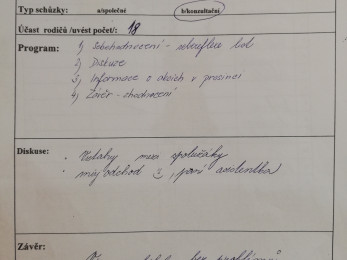 Typ schůzky: a/společné b/konzultační
Účast rodičů /uvést počet/: 18
Program: 1) Sebehodnocení -
2) Diskuze
3) Informace o akcích v prosinci
4) Závěr - zhodnocení
Diskuse: · Vztahy mezi spolužáky
· můj odchod :), paní asistentka
Závěr:
bez problémů